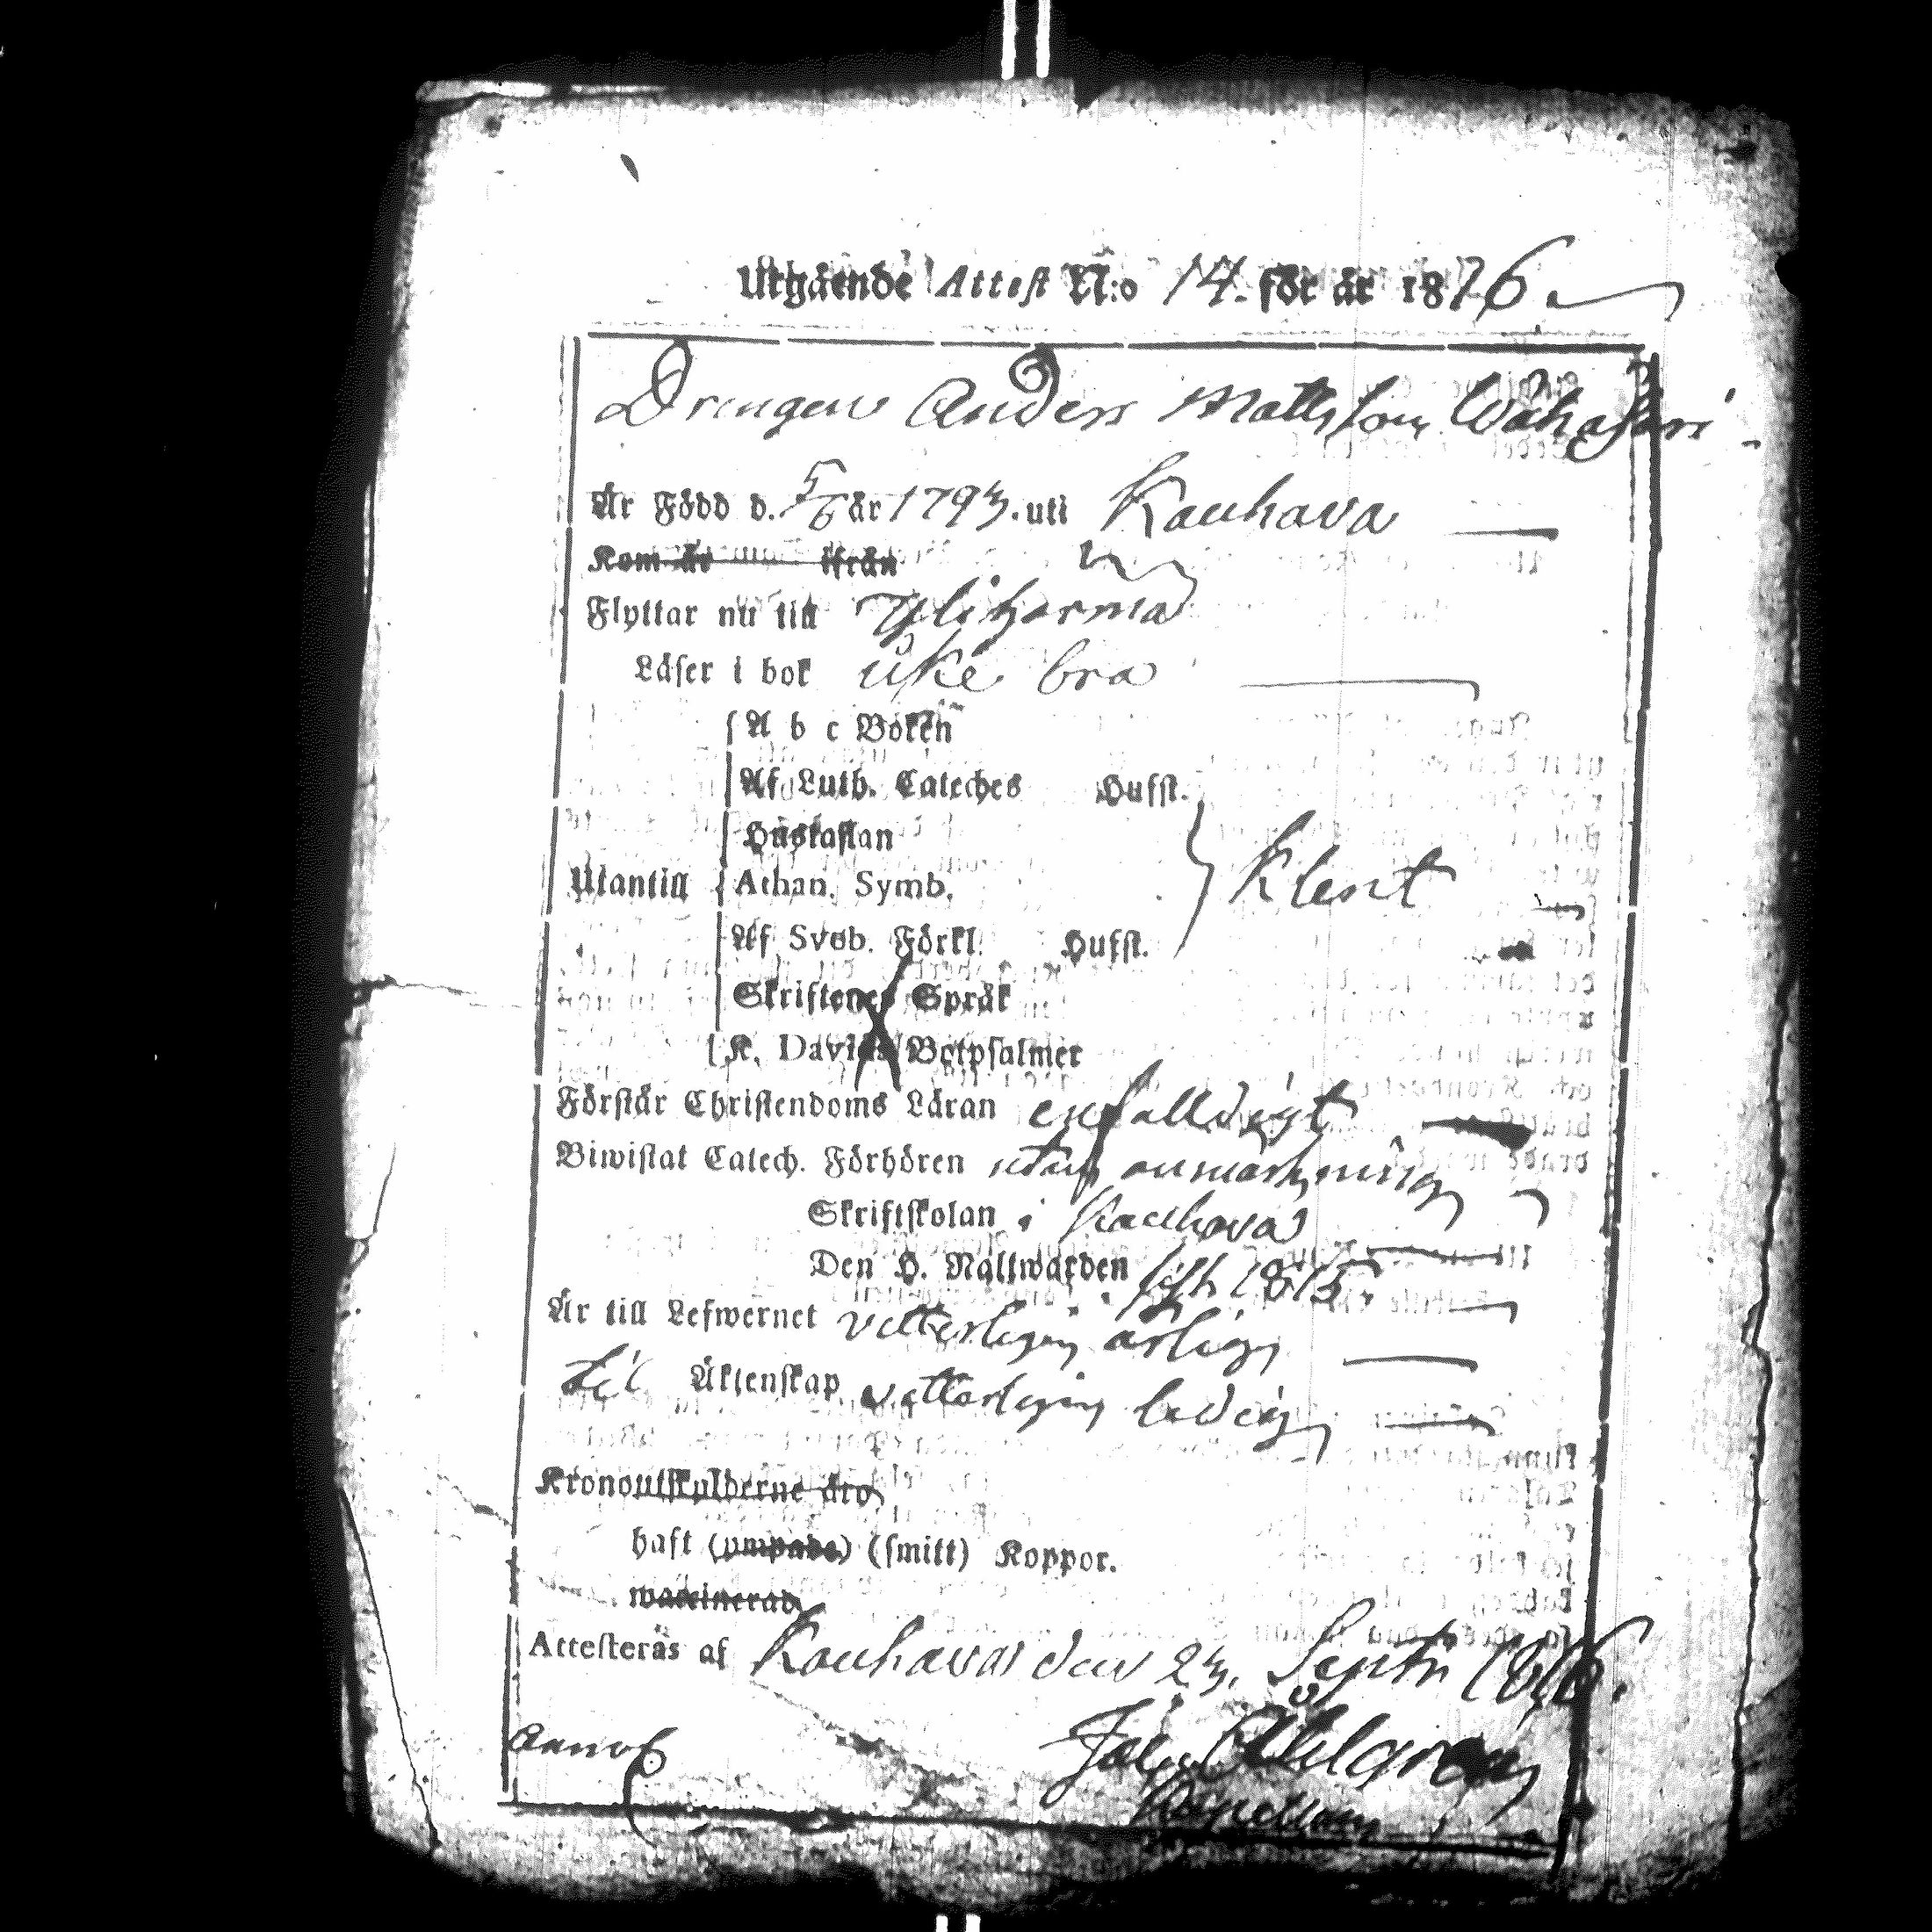 Utgående Attest N:o 14. för år 1816.
Drengen Anders Mattsson Wähäjäri
Är Född d. 5/6 år 1793. uti Kauhava
Kom år ifrån
Flyttar nu till Ylihärmä
Läser i bok icke bra
A b c Boken
Af Luth. Cateches Hufst.
Hustaflan
Utantill Athan. Symb. Klent
Af Sveb. Förkl. Hufst.
Skriftenes Språk
K. Davids Botpsalmer
Förstår Christendoms Läran enfalldigt
Biwistat Catech. Förhören utan anmärkning
Skriftskolan i Kauhava
Den H. Nattwarden sist 1815.
Är till Lefwernet vetterligen ärlig
til Äktenskap vetterligen ledig
Kronoutskylderne äro
haft (ympade) (smitt) Koppor.
waccinerad
Attesteras af Kauhava den 23. Septr 1816.
Kapellan